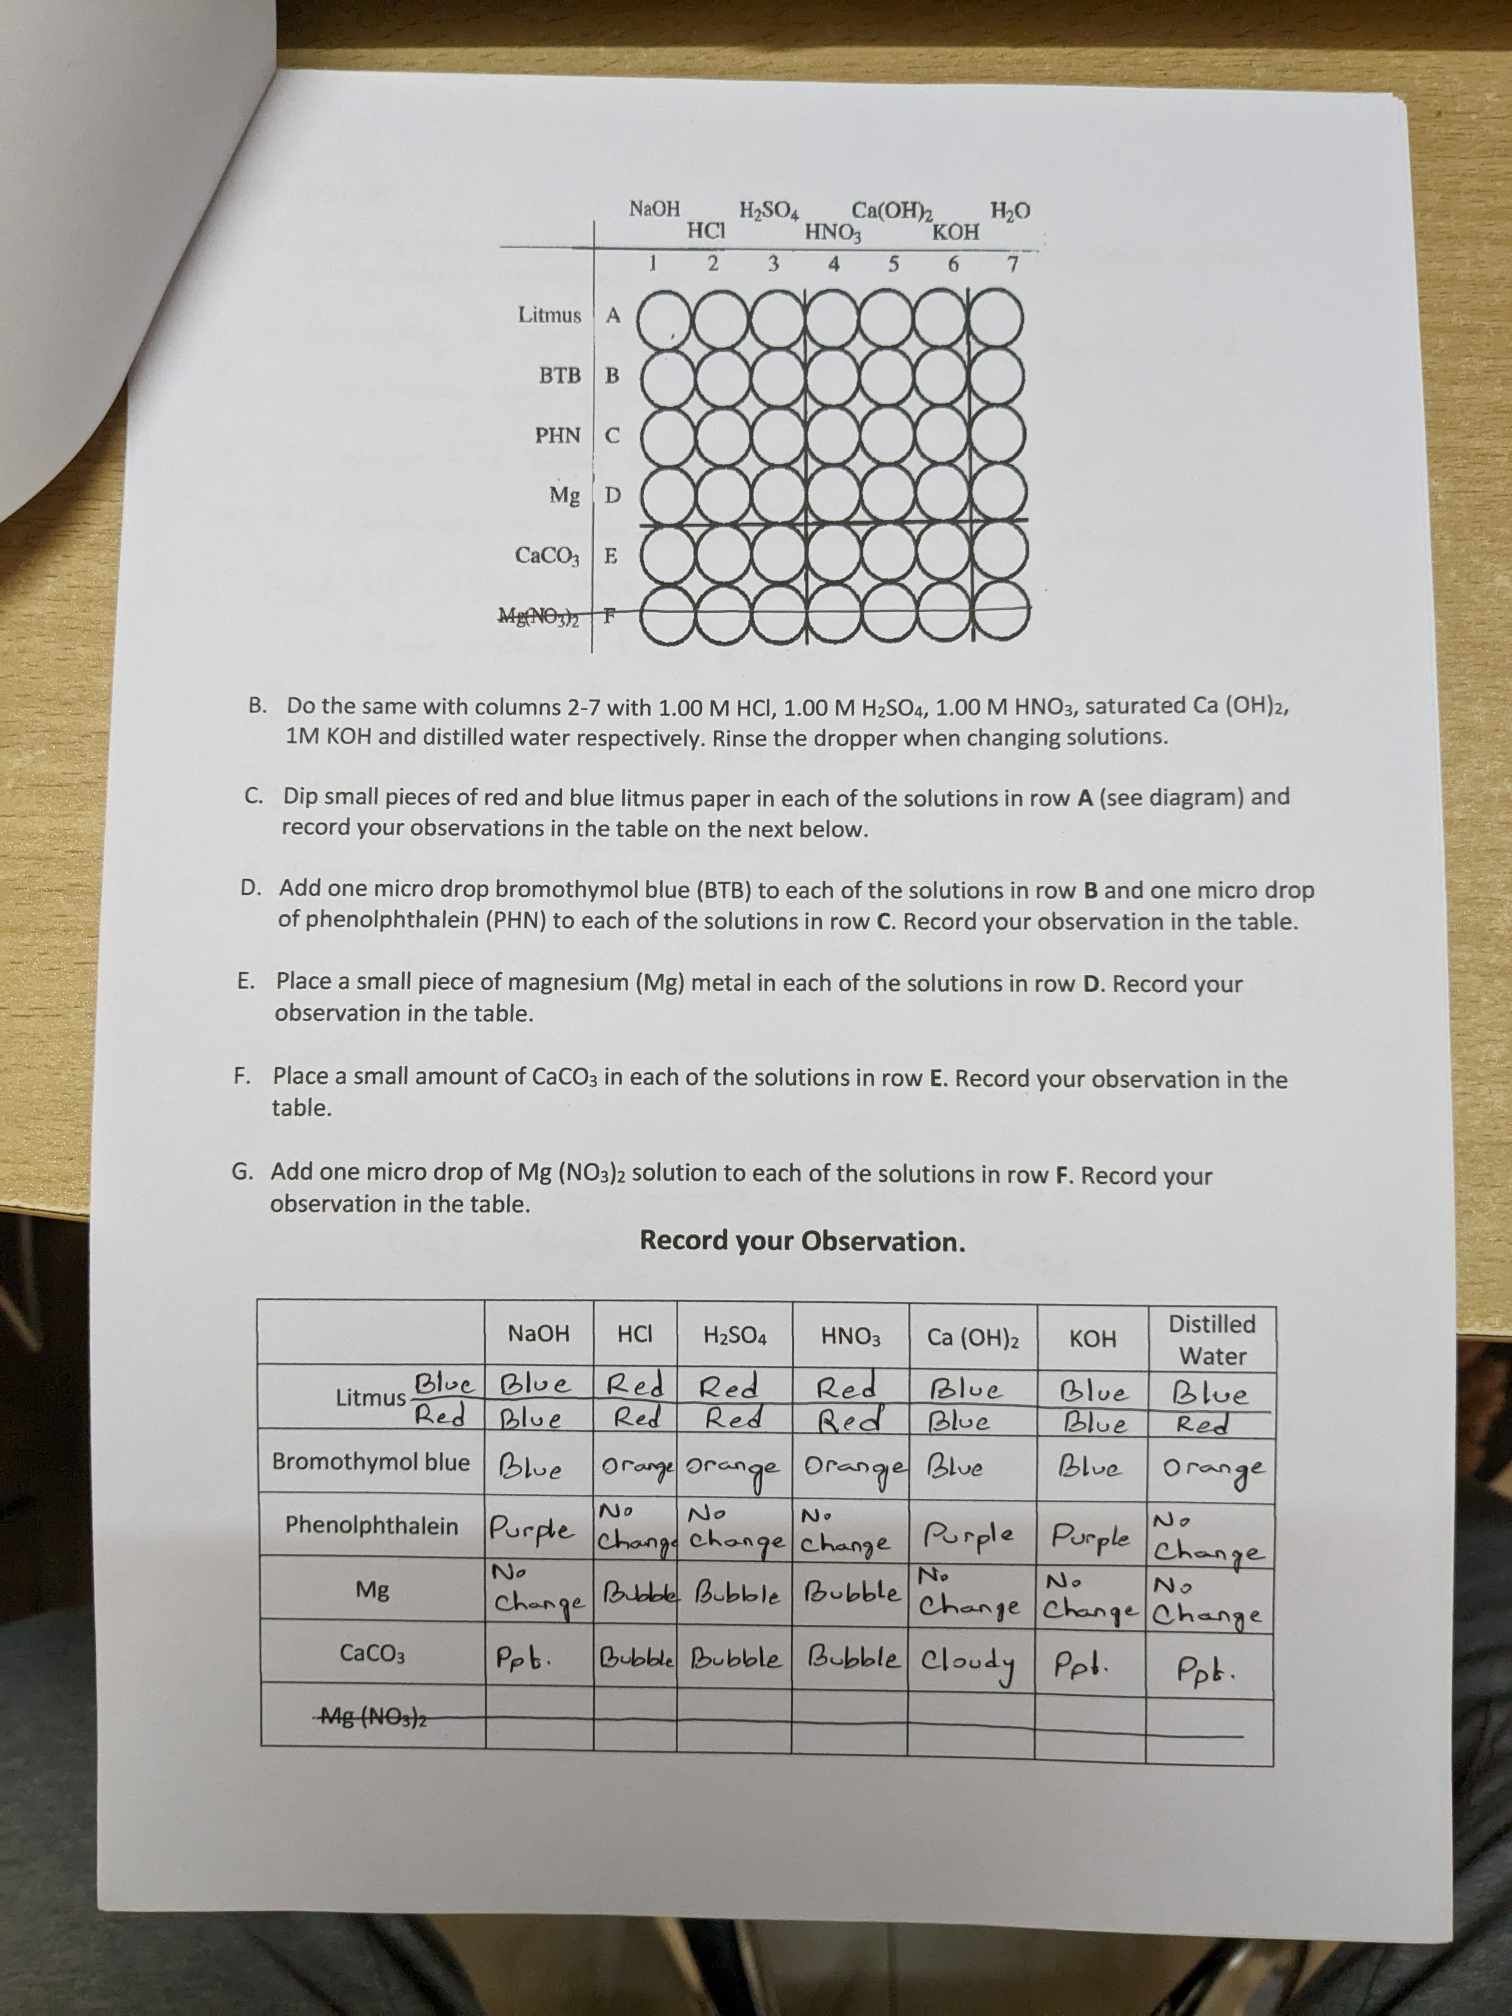 NaOH H₂SO₄ Ca(OH)₂ H₂O
HCl HNO₃ KOH
1 2 3 4 5 6 7
Litmus A
BTB B
PHN C
Mg D
CaCO₃ E
Mg(NO₃)₂ F
B. Do the same with columns 2-7 with 1.00 M HCl, 1.00 M H₂SO₄, 1.00 M HNO₃, saturated Ca (OH)₂,
1M KOH and distilled water respectively. Rinse the dropper when changing solutions.
C. Dip small pieces of red and blue litmus paper in each of the solutions in row A (see diagram) and
record your observations in the table on the next below.
D. Add one micro drop bromothymol blue (BTB) to each of the solutions in row B and one micro drop
of phenolphthalein (PHN) to each of the solutions in row C. Record your observation in the table.
E. Place a small piece of magnesium (Mg) metal in each of the solutions in row D. Record your
observation in the table.
F. Place a small amount of CaCO₃ in each of the solutions in row E. Record your observation in the
table.
G. Add one micro drop of Mg (NO₃)₂ solution to each of the solutions in row F. Record your
observation in the table.
Record your Observation.
NaOH HCl H₂SO₄ HNO₃ Ca (OH)₂ KOH Distilled Water
Litmus Blue Blue Red Red Red Blue Blue Blue
Red Blue Red Red Red Blue Blue Red
Bromothymol blue Blue Orange Orange Orange Blue Blue Orange
Phenolphthalein Purple No Change No Change No Change Purple Purple No Change
Mg No Change Bubble Bubble Bubble No Change No Change No Change
CaCO₃ Ppt. Bubble Bubble Bubble Cloudy Ppt. Ppt.
Mg (NO₃)₂